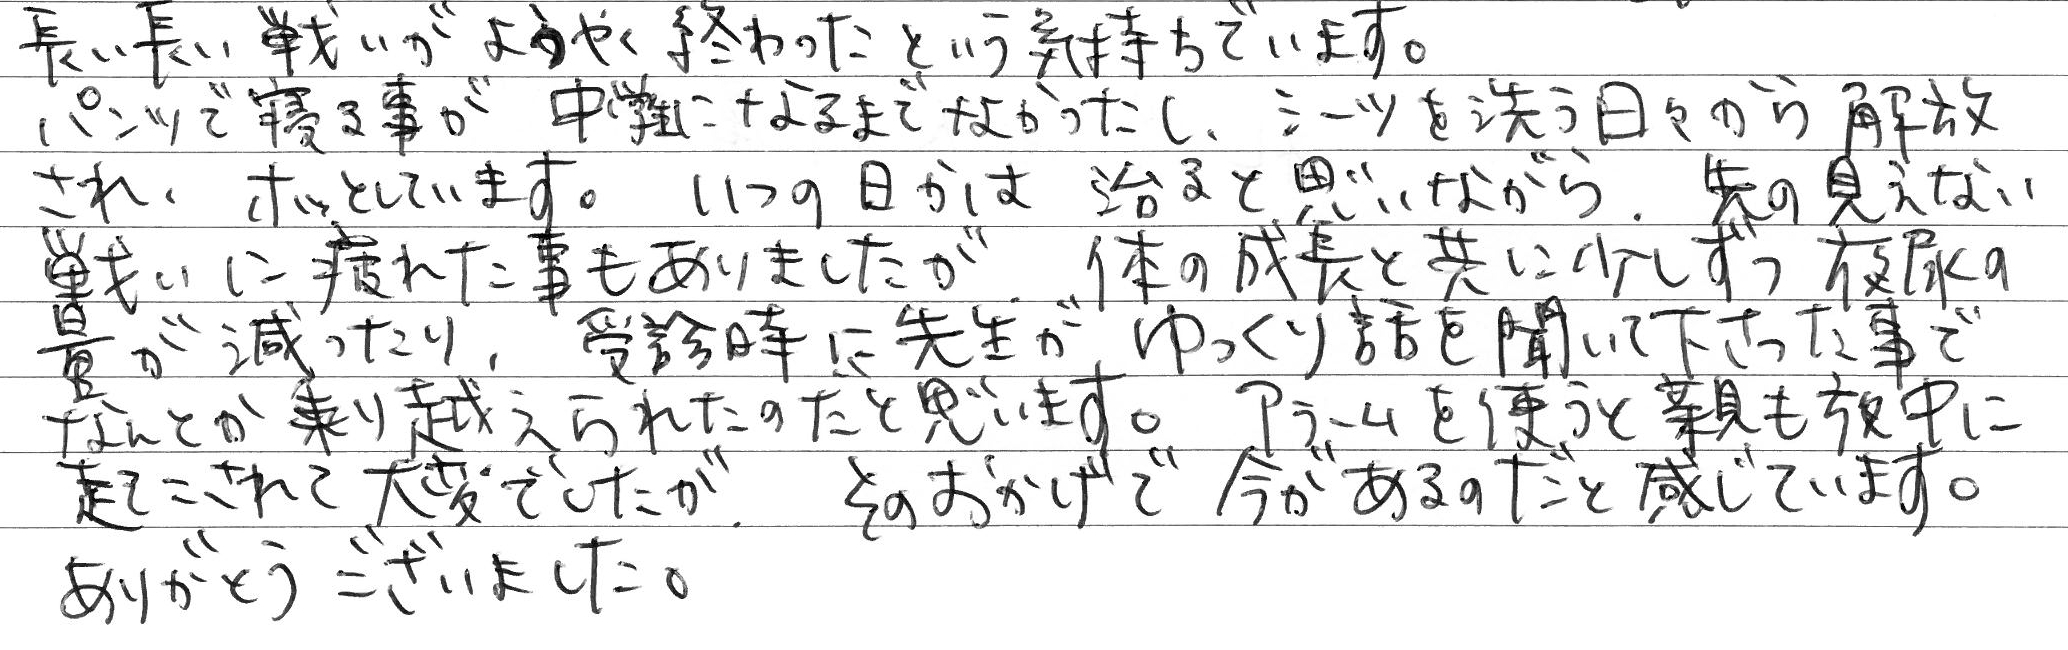 長い長い戦いがようやく終わったという気持ちでいます。
パンツで寝る事が中学になるまでなかったし、シーツを洗う日々から解放
され、ホッとしています。いつの日かは治ると思いながら、先の見えない
戦いに疲れた事もありましたが、体の成長と共に少しずつ夜尿の
量が減ったり、受診時に先生がゆっくり話を聞いて下さった事で
なんとか乗り越えられたのだと思います。アラームを使うと親も夜中に
起こされて大変でしたが、そのおかげで今があるのだと感じています。
ありがとうございました。